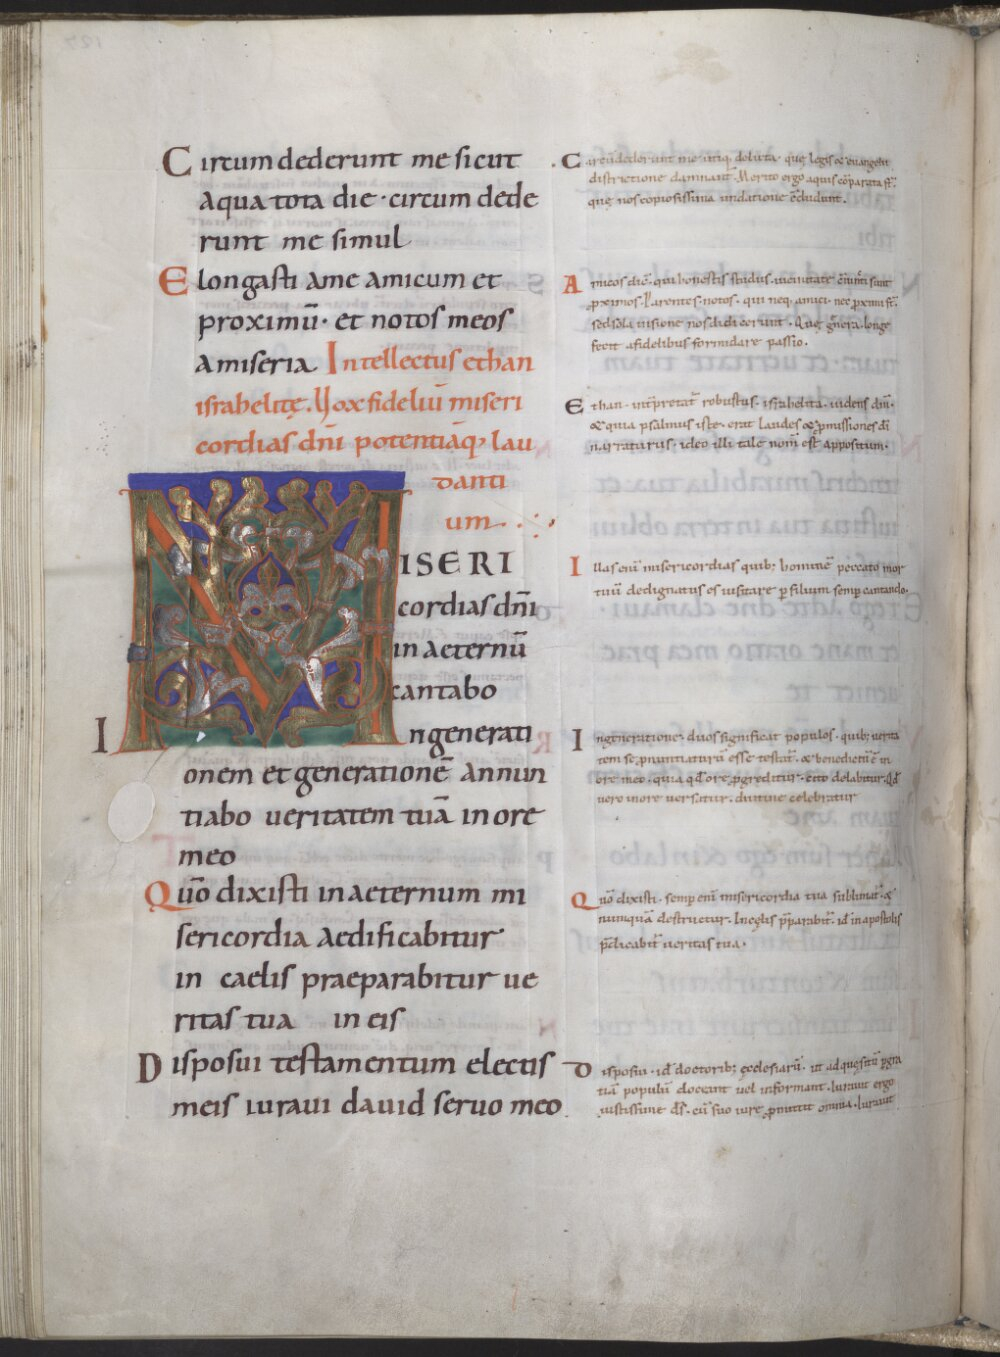 Circumdederunt me sicut
aqua tota die · circumdede
runt me simul
Elongasti a me amicum et
proximū · et notos meos
a miseria Intellectus ethan
israhelitę. Vox fideliū miseri
cordias dñi potentiaq; lau
danti
um
MISERI
cordias dñi
in aeternū
cantabo
In generati
onem et generationē annun
tiabo veritatem tuā in ore
meo
Quō dixisti in aeternum mi
sericordia aedificabitur
in caelis praeparabitur ve
ritas tua in eis
Disposui testamentum electis
meis iuravi david servo meo
Circūdederunt me utiq. delicta · quę legis & evangelii
districtione damnant. Merito ergo aquis cōparata st̄
quę nos copiosissima undatione
Ameos dic̄ · qui honestis studiis
proximos. Parentes · notos · qui neq. amici · nec proximi st̄
sed sola visione nos didicerunt. Quę gn̄era longe
fecit a fidelibus formidare passio.
Ethan · int̄pretat̄ robustus · israhelita · videns dn̄m ·
& quia psalmus iste · erat laudes & promissiones dī
narraturus · ideo illi tale nom̄ est appositum ·
Illas enī misericordias quib; hominē peccato mor
tuū dedignatus es visitare p filium semp cantando.
In generatione · duos significat populos · quib; verita
tem se pnuntiaturū esse testat̄ · & benedictū ē in
ore meo · quia qđ ore progreditur · cito delabitur. Qđ
vero in ore versatur · divine celebratur
Quō dixisti · semp enī misericordia tua sublimat̄ · &
numquā destruetur. In cęlis pparabit̄ · id in apostolis
pdicabit̄ veritas tua ·
Disposui · id doctorib; ęcclesiarū · ut adquęsitū p gra
tiā populū doceant vel informant. Iuravit ergo
iustissime ds̄ · cū suo iure promittit omnia. Iuravit